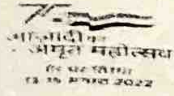 आज़ादी का
अमृत महोत्सव
हर घर तिरंगा
13-15 अगस्त 2022